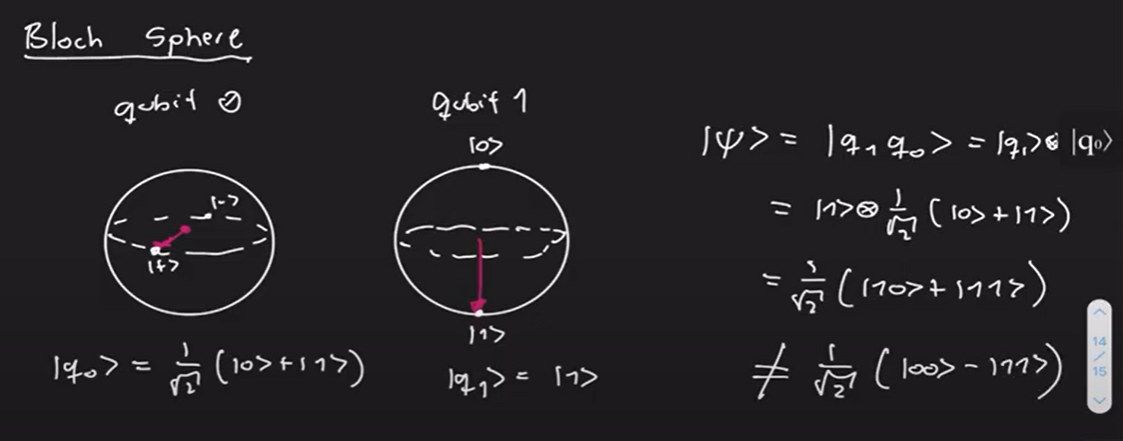 Bloch Sphere
qubit 0
qubit 1
|0>
|->
|+>
|1>
|q₀> = 1/√2 (|0> + |1>)
|q₁> = |1>
|ψ> = |q₁ q₀> = |q₁> ⊗ |q₀>
= |1> ⊗ 1/√2 (|0> + |1>)
= 1/√2 (|10> + |11>)
≠ 1/√2 (|00> - |11>)
14
/
15